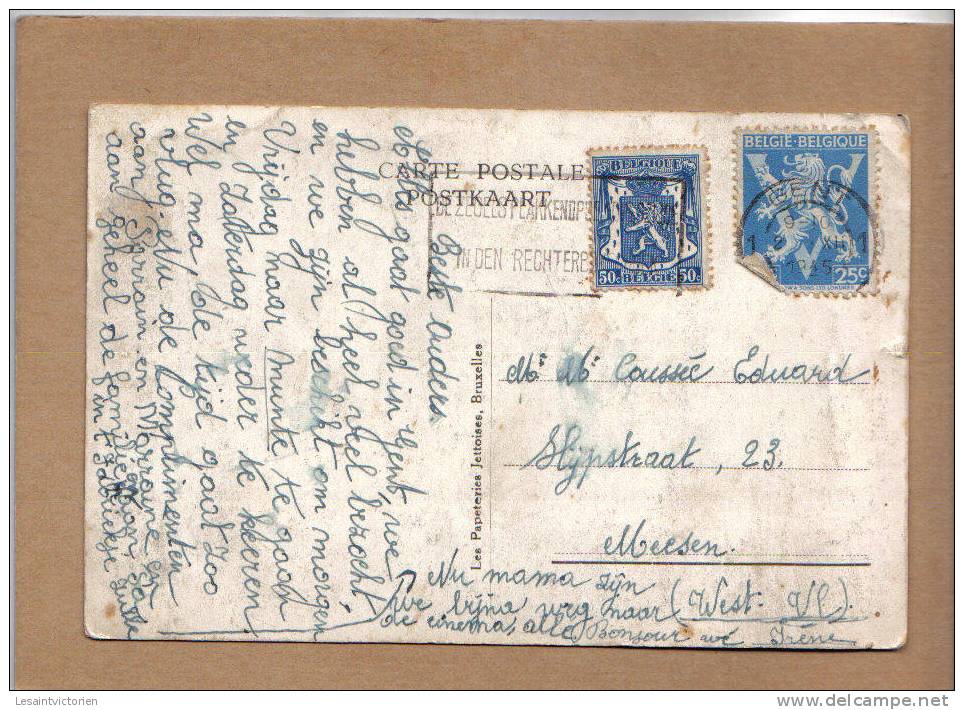 CARTE POSTALE
POSTKAART
BELGIQUE
50c 50c
BELGIE
BELGIE-BELGIQUE
25c
GENT
1 1
DE ZEGELS PLAKKEN
IN DEN RECHTER
Beste ouders
Alles gaat goed in Gent, we
hebben al heel veel bezocht,
en we zijn beschikt om morgen,
Vrijdag naar Munte te gaan
en Zaterdag weder te keeren
Wel ma lode tijd gaat zoo
vlug. Nu de komplimenten
aan Parrain en Marraine en
aan geheel de familie
Les Papeteries Jettoises, Bruxelles
Mr Mme Coussée Eduard
Slijpstraat, 23.
Meesen.
(West-Vl).
Nu mama zijn
we bijna weg naar
de cinema, allé, Bonjour Irène
Lesaintvictorien
delcampe.net